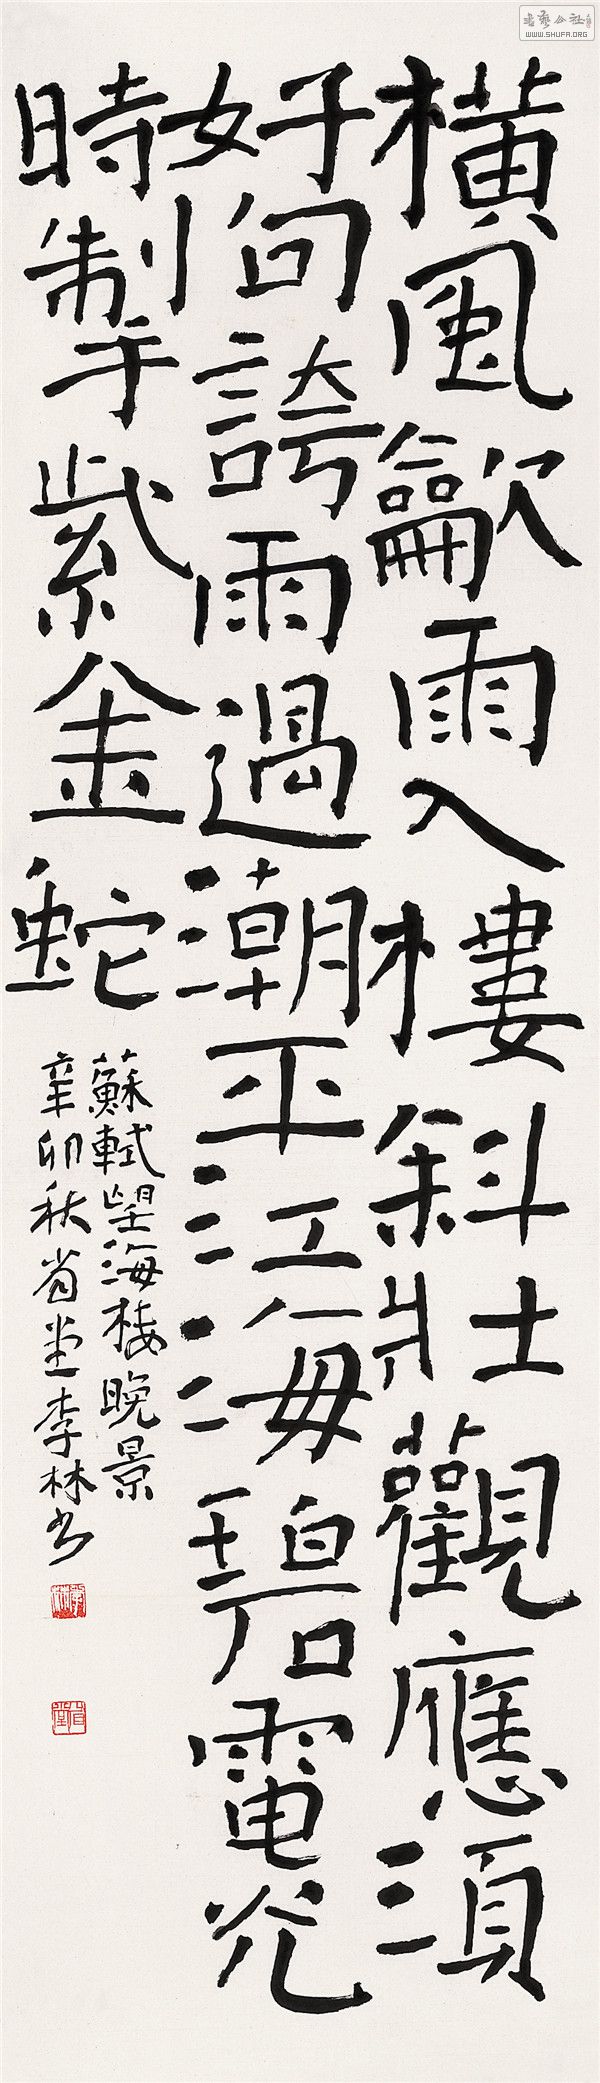 橫風歙雨入樓斜壯觀應須
好句誇雨過潮平江海碧電光
時掣紫金蛇
蘇軾望海楼晚景
辛卯秋省堂李林书
李林
省堂
書藝公社
WWW.SHUFA.ORG